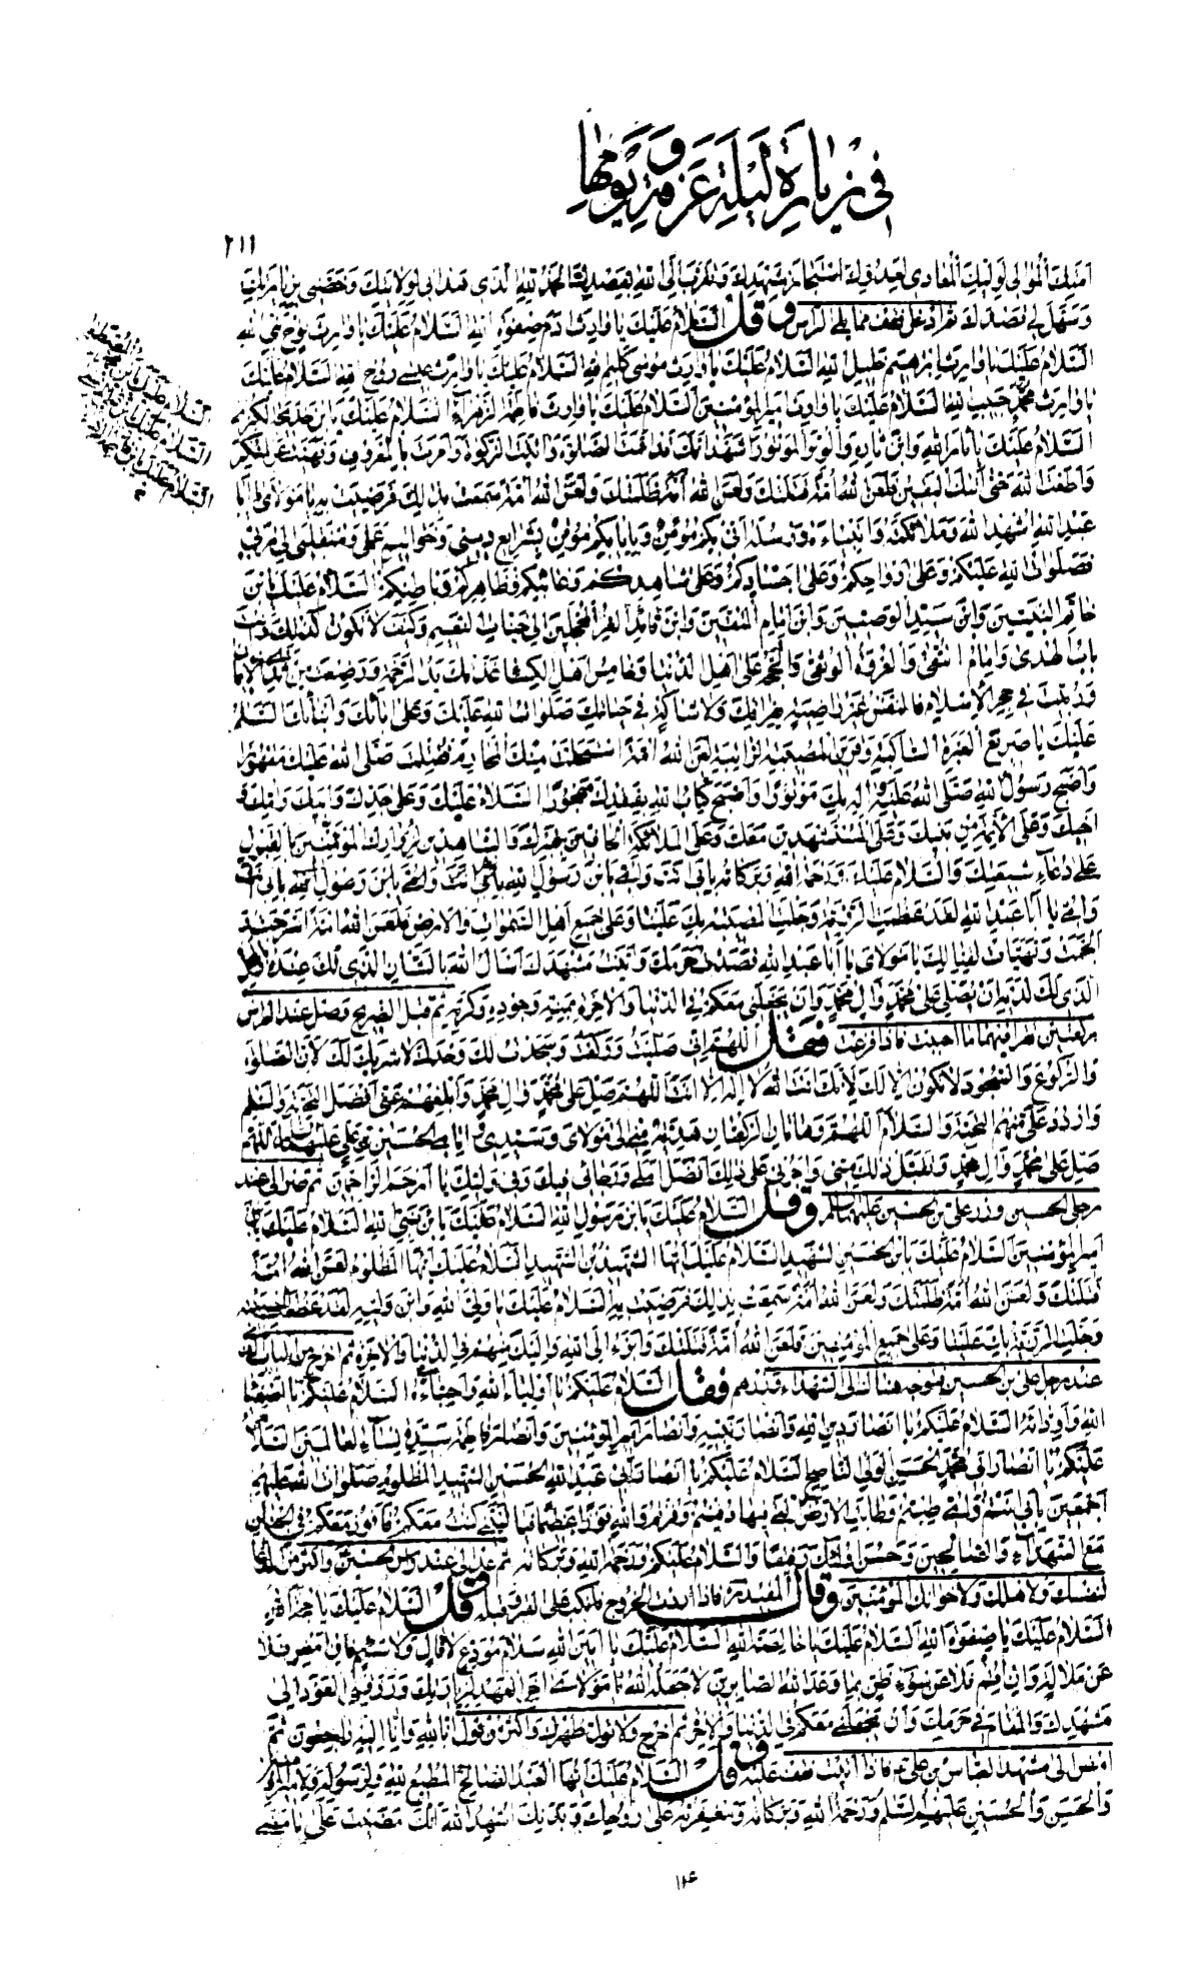 في زيارة ليلة عرفة ويومها
٢١١
امتك الموالي لوليك المعادي لعدوك استجار بمشهدك وتقرب الى الله بقصدك الحمد لله الذي هداني لولايتك وخصني بزيارتك
وسهل لي قصدك ثم ادخل فقف مما يلي الراس وقل السلام عليك يا وارث ادم صفوة الله السلام عليك يا وارث نوح نبي الله
السلام عليك يا وارث ابرهيم خليل الله السلام عليك يا وارث موسى كليم الله السلام عليك يا وارث عيسى روح الله السلام عليك
يا وارث محمد حبيب الله السلام عليك يا وارث امير المؤمنين السلام عليك يا وارث فاطمة الزهراء السلام عليك يابن خديجة الكبرى
السلام عليك يا ثار الله وابن ثاره والوتر الموتور اشهد انك قد اقمت الصلوة واتيت الزكوة وامرت بالمعروف ونهيت عن المنكر
واطعت الله حتى اتيك اليقين فلعن الله امة قتلتك ولعن الله امة ظلمتك ولعن الله امة سمعت بذلك فرضيت به يا مولاي يا ابا
عبد الله اشهد الله وملائكته وانبياءه ورسله اني بكم مؤمن وبايابكم موقن بشرايع ديني وخواتيم عملي ومنقلبي الى ربي
فصلوات الله عليكم وعلى ارواحكم وعلى اجسادكم وعلى شاهدكم وغائبكم وظاهركم وباطنكم السلام عليك يابن
خاتم النبيين وابن سيد الوصيين وابن امام المتقين وابن قائد الغر المحجلين الى جنات النعيم وكيف لا تكون كذلك وانت
باب الهدى وامام التقى والعروة الوثقى والحجة على اهل الدنيا وخامس اهل الكساء غذتك يد الرحمة ورضعت من ثدي الايمان
وربيت في حجر الاسلام فالنفس غير راضية بفراقك ولا شاكة في حياتك صلوات الله عليك وعلى ابائك وابنائك السلام
عليك يا صريع العبرة الساكبة وقرين المصيبة الراتبة لعن الله امة استحلت منك المحارم فقتلت صلى الله عليك مقهورا
واصبح رسول الله صلى الله عليه واله بك موتورا واصبح كتاب الله بفقدك مهجورا السلام عليك وعلى جدك وابيك وامك
اخيك وعلى الائمة من بنيك وعلى المستشهدين معك وعلى الملائكة الحافين بقبرك والشاهدين لزوارك المؤمنين بالقبول
على دعاء شيعتك والسلام عليك ورحمة الله وبركاته بابي انت وامي يابن رسول الله بابي انت وامي يابن رسول الله بابي انت
وامي يا ابا عبد الله لقد عظمت الرزية وجلت المصيبة بك علينا وعلى جميع اهل السموات والارض فلعن الله امة اسرجت
الجمت وتهيأت لقتالك يا مولاي يا ابا عبد الله قصدت حرمك واتيت مشهدك اسال الله بالشان الذي لك عنده وبالمحل
الذي لك لديه ان يصلي على محمد وال محمد وان يجعلني معكم في الدنيا والاخرة بمنه وجوده وكرمه ثم قبل الضريح وصل عند الراس
ركعتين تقرأ فيهما ما احببت فاذا فرغت فقل اللهم اني صليت وركعت وسجدت لك وحدك لا شريك لك لان الصلوة
والركوع والسجود لا تكون الا لك لانك انت الله لا اله الا انت اللهم صل على محمد وال محمد وابلغهم عني افضل التحية والسلام
واردد علي منهم التحية والسلام اللهم وهاتان الركعتان هدية مني الى مولاي وسيدي وامامي الحسين بن علي عليهما السلام اللهم
صل على محمد وال محمد وتقبل ذلك مني واجزني على ذلك افضل املي ورجائي فيك وفي وليك يا ارحم الراحمين ثم صر الى عند
رجلي الحسين وزر علي بن الحسين عليهما السلام وقل السلام عليك يابن رسول الله السلام عليك يابن نبي الله السلام عليك يابن
امير المؤمنين السلام عليك يابن الحسين الشهيد السلام عليك ايها الشهيد بن الشهيد السلام عليك ايها المظلوم لعن الله امة
قتلتك ولعن الله امة ظلمتك ولعن الله امة سمعت بذلك فرضيت به السلام عليك يا ولي الله وابن وليه لقد عظمت المصيبة
وجلت الرزية بك علينا وعلى جميع المؤمنين فلعن الله امة قتلتك وابرء الى الله واليك منهم في الدنيا والاخرة ثم اخرج من الباب الذي
عند رجل علي بن الحسين فتوجه هناك الى الشهداء وزرهم فقل السلام عليكم يا اولياء الله واحباءه السلام عليكم يا اصفياء
الله واوداءه السلام عليكم يا انصار دين الله وانصار نبيه وانصار امير المؤمنين وانصار فاطمة سيدة نساء العالمين السلام
عليكم يا انصار ابي محمد الحسن الولي الناصح السلام عليكم يا انصار ابي عبد الله الحسين الشهيد المظلوم صلوات الله عليهم
اجمعين بابي انتم وامي طبتم وطابت الارض التي فيها دفنتم وفزتم والله فوزا عظيما يا ليتني كنت معكم فافوز معكم في الجنان
مع الشهداء والصالحين وحسن اولئك رفيقا والسلام عليكم ورحمة الله وبركاته ثم عد الى عند راس الحسين واكثر من الدعاء
لنفسك ولاهلك ولاخوانك المؤمنين وقال المفيد فاذا اردت الخروج فانكب على القبر وقبله وقل السلام عليك يا حجة الله
السلام عليك يا صفوة الله السلام عليك يا خالصة الله السلام عليك يا امين الله سلام مودع لا قال ولا سئم فان امض فلا
عن ملالة وان اقم فلا عن سوء ظن بما وعد الله الصابرين لا جعله الله يا مولاي اخر العهد لزيارتك ورزقني العود الى
مشهدك والمقام في حرمك وان يجعلني معكم في الدنيا والاخرة ثم اخرج ولا تول ظهرك واكثر من قول انا لله وانا اليه راجعون ثم
امض الى مشهد العباس بن علي فاذا اتيت فقف عليه وقل السلام عليك ايها العبد الصالح المطيع لله ولرسوله ولامير المؤمنين
والحسن والحسين عليهم السلام ورحمة الله وبركاته ومغفرته على روحك وبدنك اشهد الله انك مضيت على ما مضى
السلام عليك يابن محمد المصطفى
السلام عليك يابن
السلام عليك يابن
١٢۶